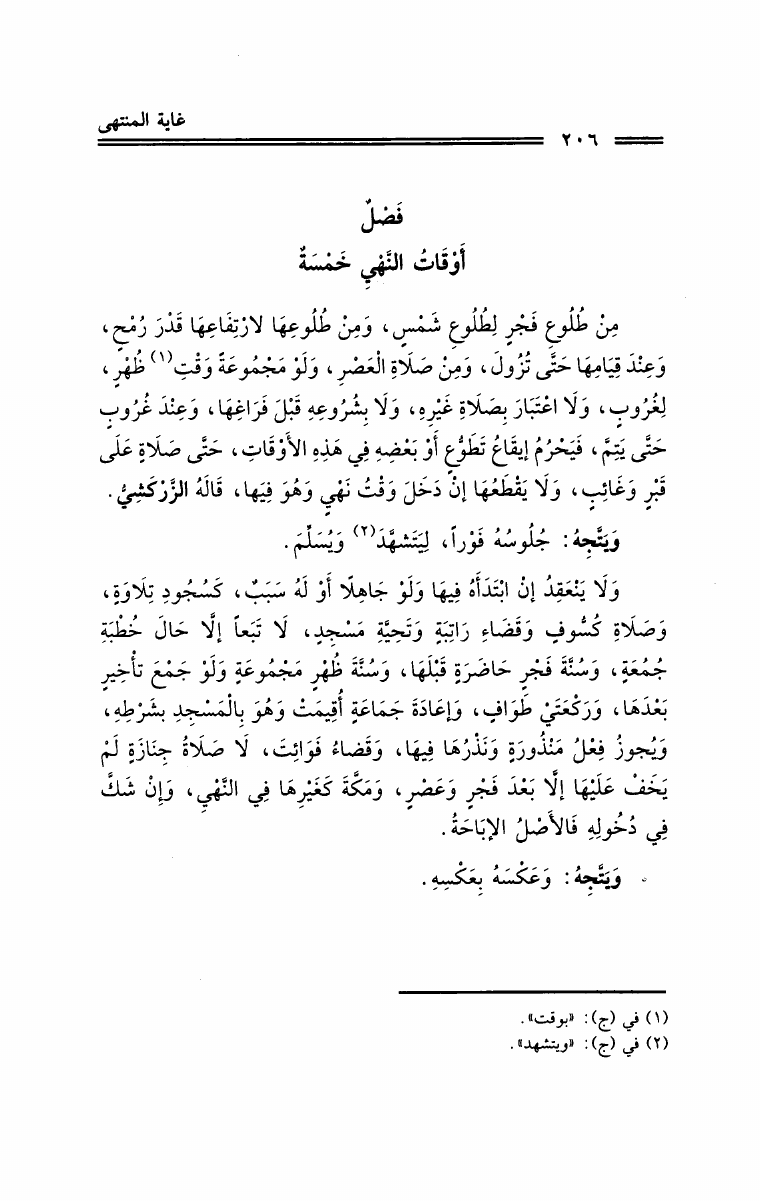 غاية المنتهى
٢٠٦
فَصْلٌ
أَوْقَاتُ النَّهْيِ خَمْسَةٌ
مِنْ طُلُوعِ فَجْرٍ لِطُلُوعِ شَمْسٍ، وَمِنْ طُلُوعِهَا لارْتِفَاعِهَا قَدْرَ رُمْحٍ،
وَعِنْدَ قِيَامِهَا حَتَّى تَزُولَ، وَمِنْ صَلَاةِ الْعَصْرِ، وَلَوْ مَجْمُوعَةً وَقْتِ(١) ظُهْرٍ،
لِغُرُوبٍ، وَلَا اعْتَبَارَ بِصَلاةِ غَيْرِهِ، وَلَا بِشُرُوعِهِ قَبْلَ فَرَاغِهَا، وَعِنْدَ غُرُوبٍ
حَتَّى يَتِمَّ، فَيَحْرُمُ إيقَاعُ تَطَوُّعٍ أَوْ بَعْضِهِ فِي هَذِهِ الأَوْقَاتِ، حَتَّى صَلَاةٍ عَلَى
قَبْرٍ وَغَائِبٍ، وَلَا يَقْطَعُهَا إنْ دَخَلَ وَقْتُ نَهْيٍ وَهُوَ فِيهَا، قَالَهُ الزَّرْكَشِيُّ.
وَيَتَّجِهُ: جُلُوسُهُ فَوْراً، لِيَتَشهَّدَ(٢) وَيُسَلِّمَ.
وَلَا يَنْعَقِدُ إنْ ابْتَدَأَهُ فِيهَا وَلَوْ جَاهِلًا أَوْ لَهُ سَبَبٌ، كَسُجُودِ تِلَاوَةٍ،
وَصَلَاةِ كُسُوفٍ وَقَضَاءِ رَاتِبَةٍ وَتَحِيَّةِ مَسْجِدٍ، لَا تَبَعاً إلَّا حَالَ خُطْبَةِ
جُمُعَةٍ، وَسُنَّةَ فَجْرٍ حَاضَرَةٍ قَبْلَهَا، وَسُنَّةَ ظُهْرٍ مَجْمُوعَةٍ وَلَوْ جَمْعَ تأْخِيرٍ
بَعْدَهَا، وَرَكْعَتَيْ طَوَافٍ، وَإعَادَةَ جَمَاعَةٍ أُقِيمَتْ وَهُوَ بِالْمَسْجِدِ بِشَرْطِهِ،
وَيُجوزُ فِعْلُ مَنْذُورَةٍ وَنَذْرُهَا فِيهَا، وَقَضاءُ فَوائِتَ، لَا صَلَاةُ جِنَازَةٍ لَمْ
يَخَفْ عَلَيْهَا إلَّا بَعْدَ فَجْرٍ وَعَصْرٍ، وَمَكَّةَ كَغَيْرِهَا فِي النَّهْيِ، وَإِنْ شَكَّ
فِي دُخُولِهِ فَالأَصْلُ الإبَاحَةُ.
وَيَتَّجِهُ: وَعَكْسَهُ بِعَكْسِهِ.
(١) في (ج): «بوقت».
(٢) في (ج): «ويتشهد».